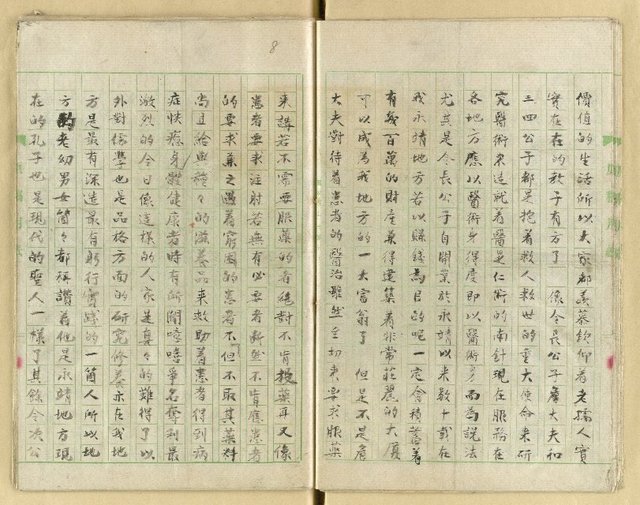 價值的生活所以大家都羨慕欽仰着老孺人實
實在在的教子有方了 像令長公子詹大夫和
三四公子都是抱着救人救世的重大使命來研
究醫術來造就着醫是仁術的南針現在服務在
各地方應以醫術身得度即以醫術身而為說法
尤其是令長公子自開業於永靖以來數十載在
我永靖地方若以賺錢為目的呢一定會積蓄着
有幾百萬的財產兼得建築着非常莊麗的大廈
可以成為我地方的一大富翁了 但是不是詹
大夫對待着患者的醫治雖然主切來要求服藥
8
來講若不需要服藥的者絕對不肯投藥再又像
患者要求注射若無有必要者斷然不肯應患者
的要求兼之遇着窮困的患者不但不取其藥料
尚且給與種々的滋養品來救助着患者得到病
症快癒身體健康者時有所聞嗟嗟爭名奪利最
激烈的今日像這樣的人家是真々的難得了以
外對儒學也是品格方面的研究修養亦在我地
方是最有深造最有躬行實踐的一箇人所以地
方的老幼男女箇々都稱讚着他是永靖地方現
在的孔子也是現代的聖人一樣了其餘令次公